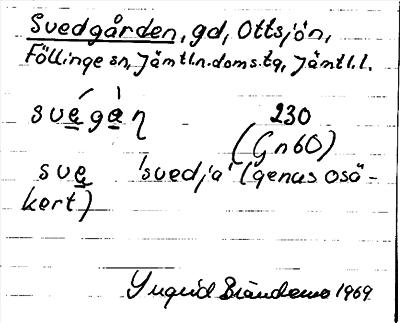 Svedgården, gd, Ottsjön,
Föllinge sn, Jämtl.n.doms.tg, Jämtl.l.
svégàn 230
(Gn60)
sve 'svedja' (genus osä-
kert)
Yngrid Brändemo 1969